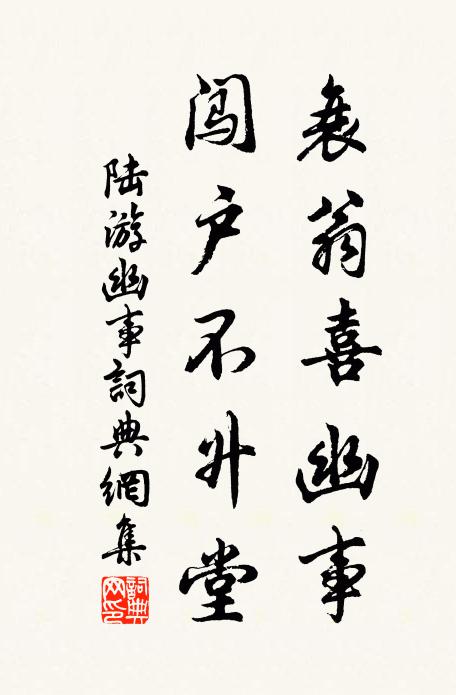 衰翁喜幽事
闯户不升堂
陆游幽事詞典網集
詞典网印